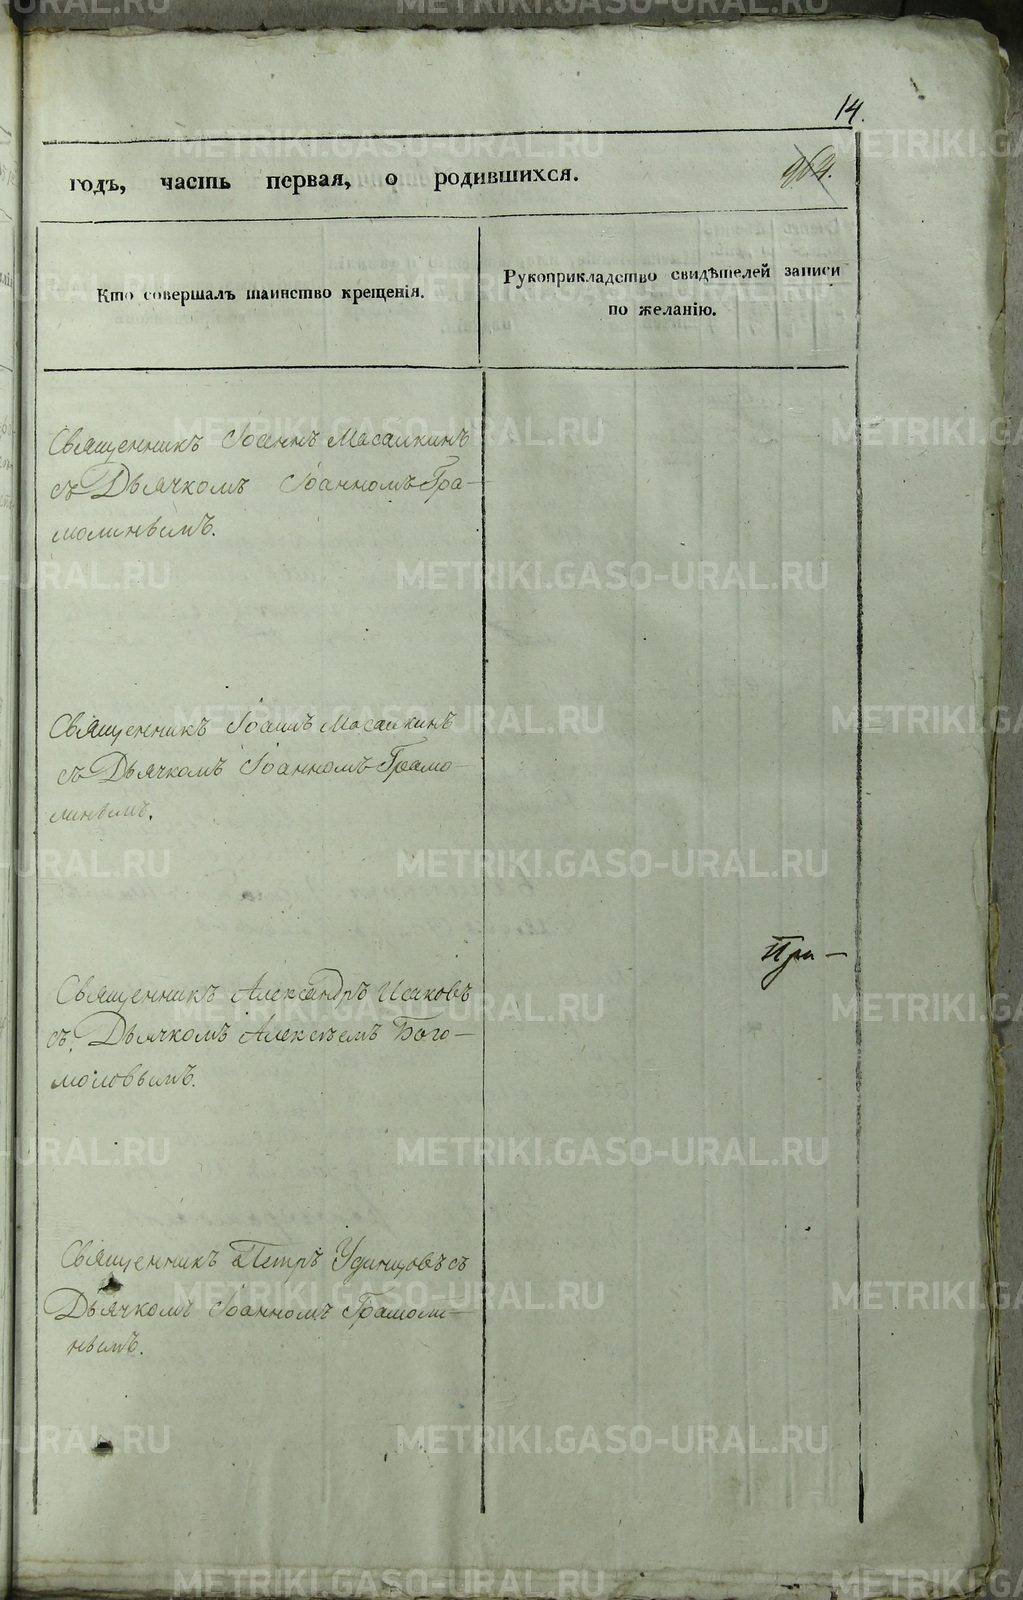 14.
годъ, часть первая, о родившихся.
964.
Кто совершалъ таинство крещенія.
Рукоприкладство свидѣтелей записи
по желанію.
Священникъ Іоаннъ Масалкинъ
съ Дьячкомъ Іоанномъ Гра-
молинымъ.
Священникъ Іоаннъ Масалкинъ
съ Дьячкомъ Іоанномъ Грамо-
линымъ.
При-
Священникъ Александръ Исаковъ
съ Дьячкомъ Алексѣемъ Бого-
моловымъ.
Священникъ Петръ Удинцовъ съ
Дьячкомъ Іоанномъ Грамоли-
нымъ.
METRIKI.GASO-URAL.RU